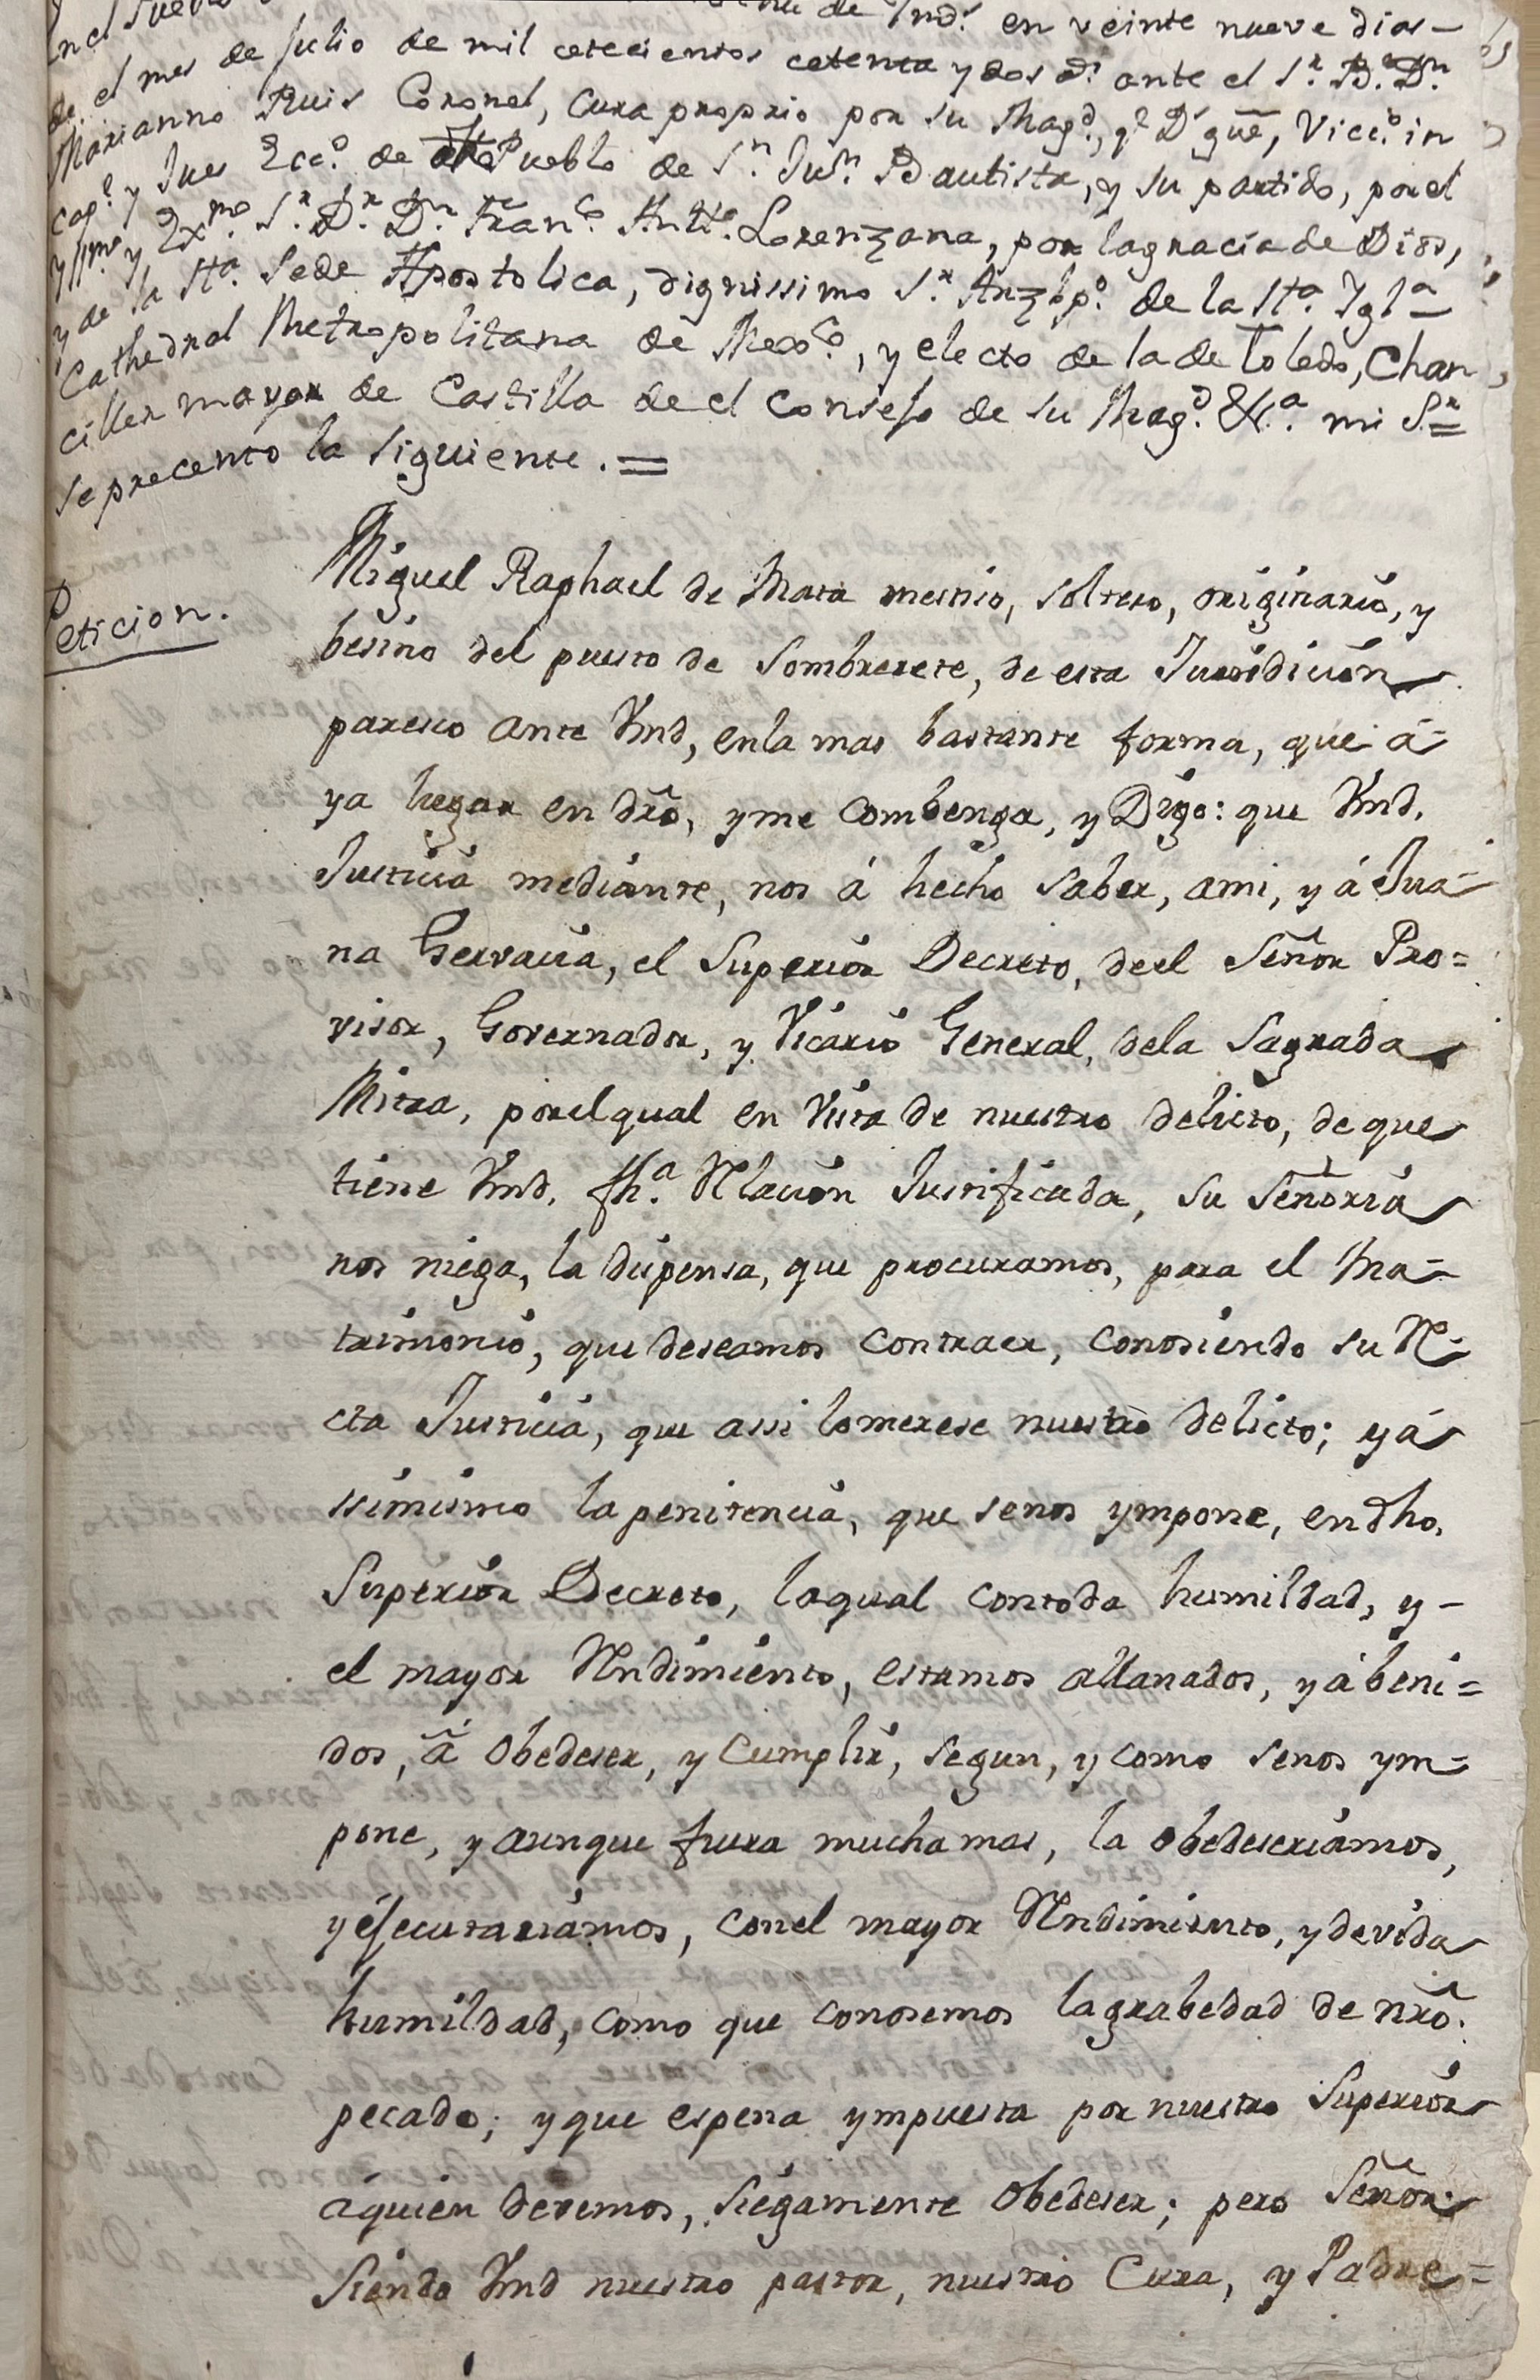 en veinte nueve dias-
de el mes de Julio de mil cetecientos cetenta y dos a.s ante el S.r B.r D.n
Marianno Ruis Coronel, Cura proprio por su Mag.d, q.e D.s gūe, Vic.o in
cap.e y Jues Ecc.o de este Pueblo de S.n Ju.n Bautista, y su partido, por el
Yll.mo y Ex.mo S.r D.r D.n Fran.co Antt.o Lorenzana, por la gracia de Dios,
y de la S.ta Sede Apostolica, dignissimo S.r Arzbp.o de la S.ta Igl.a
Cathedral Metropolitana de Mex.co, y electo de la de Toledo, Chan
ciller mayor de Castilla de el Consejo de su Mag.d &.a mi S.r =
se precento la siguiente. =
Peticion.
Miguel Raphael de Mata mestiso, soltero, originario, y
besino del puesto de Sombrerete, de esta Jurisdicion
paresco ante Vmd, en la mas bastante forma, que á-
ya lugar en dr̃o, y me combenga, y Digo: que Vmd.
Justicia mediante, nos á hecho saber, ami, y á Jua-
na Gervacia, el Superior Decreto, de el Señor Pro=
visor, Governador, y Vicario General, dela Sagrada
Mitra, por el qual en Vista de nuestro delicto, de que
tiene Vmd. fh.a Rlacion Justificada, su Señoria
nos niega, la dispensa, que procuramos, para el Ma-
trimonio, que deseamos contraer, conosiendo su R-
cta Justicia, que assi lo merese nuestro delicto; y á
ssimismo la penitencia, que senos ympone, en dho,
Superior Decreto, la qual con toda humildad, y -
el mayor Rndimiento, estamos allanados, y ábeni=
dos, á obedeser, y Cumplir, segun, y como senos ym=
pone, y aunque fuera mucha mas, la obedeseriamos,
y éjecutariámos, con el mayor Rndimiento, y devida
humildad, como que conosemos la grabedad de nr̃o.
pecado; y que es pena ympuesta por nuestro Superior
áquien devemos, siegamente obedeser; pero Señor
Siendo Vmd nuestro pastor, nuestro Cura, y Padre=